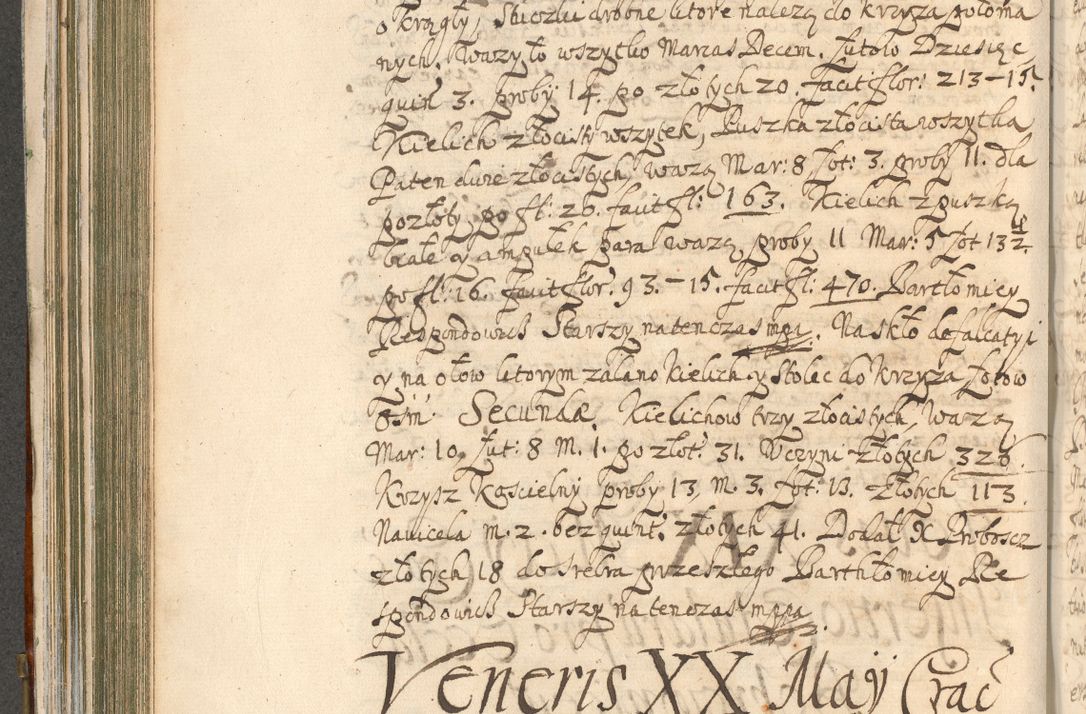 okrągły, Stuczki drobne ktore należą do krzyża połoma
nych. Ważyło wszytko Marcas Decem. Łutoło Dziesięć
quint 3. proby 14. po złotych 20. facit flor: 213–15.
Kielich złocisty wszytek, Puszka złocista wszytka
Paten dwie złocistych, ważą Mar: 8 Łot: 3. proby 11. dla
pozłoty po fl: 26. facit fl: 163. Kielich z puszką
białe y ampułek para ważą proby 11 Mar: 5 Łot 13 1/2.
po fl: 16. facit flor. 93.–15. facit fl: 470. Bartłomiey
Respondowicz Starszy na ten czas mpa. Na skło defalcatyi
y na ołow ktorym zalano kielich y stolec do krzyża łotow
ośm. Secundæ. Kielichow trzy złocistych, ważą
Mar: 10 Łut: 8 m. 1. po złot: 31. Uczyni złotych 326.
Krzysz Kościelny proby 13, m. 3. Łot: 13. złotych 113.
Navicela m. 2. bez quint: złotych 41. Dodał X Proboscz
złotych 18 do srebra przeszłego Barthłomiey Re
spondowicz Starszy na ten czas mppa.
Veneris XX Maÿ Crac